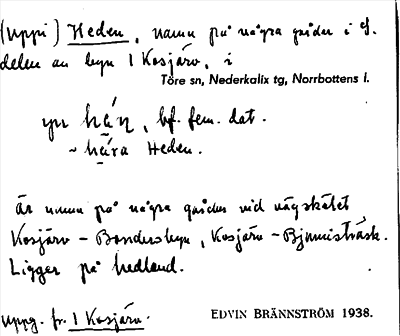 (uppi) Heden, namn på några gårdar i ef.
delen av byn 1 Kosjärv, i
Töre sn, Nederkalix tg, Norrbottens l.
bf. fem. dat.
~ Heden.
är namn på några gårdar vid vägskälet
Kosjärv - Bondersbyn, Kosjärv - Bjumisträsk.
Ligger på hedland.
uppg. fr. 1 Kosjärv.
EDVIN BRÄNNSTRÖM 1938.